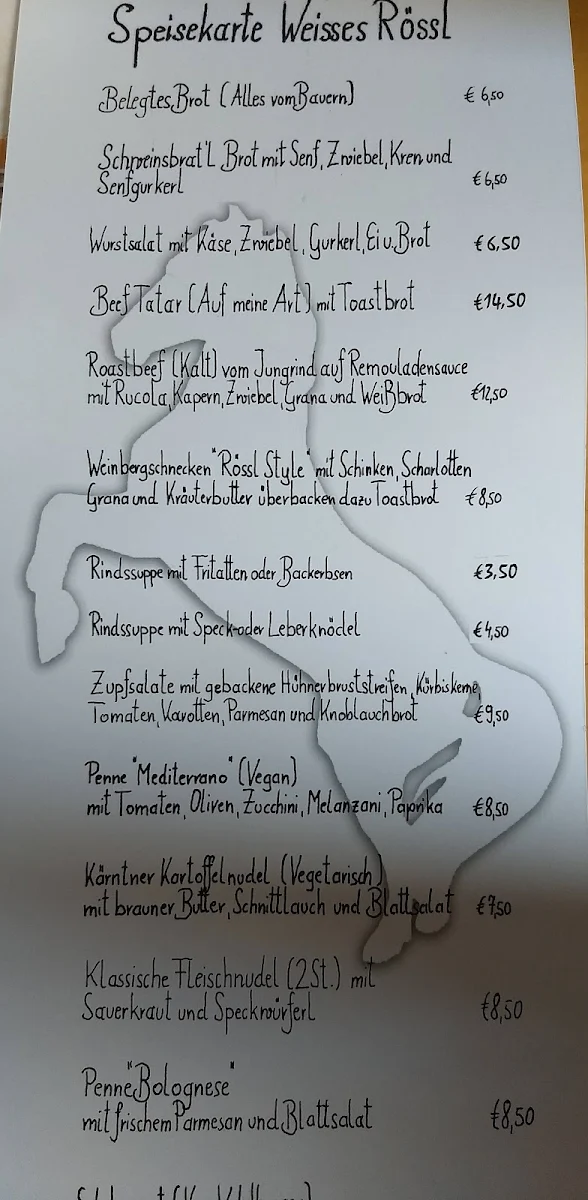 Speisekarte Weisses Rössl
Belegtes Brot (Alles vom Bauern) € 6,50
Schweinsbrat'l Brot mit Senf, Zwiebel, Kren und
Senfgurkerl €6,50
Wurstsalat mit Käse, Zwiebel, Gurkerl, Ei u. Brot €6,50
Beef Tatar (Auf meine Art) mit Toastbrot €14,50
Roastbeef (Kalt) vom Jungrind auf Remouladensauce
mit Rucola, Kapern, Zwiebel, Grana und Weißbrot €12,50
Weinbergschnecken "Rössl Style" mit Schinken, Scharlotten
Grana und Kräuterbutter überbacken dazu Toastbrot €8,50
Rindssuppe mit Fritatten oder Backerbsen €3,50
Rindssuppe mit Speck-oder Leberknödel €4,50
Zupfsalate mit gebackene Hühnerbruststreifen, Kürbiskerne,
Tomaten, Karotten, Parmesan und Knoblauchbrot €9,50
Penne "Mediterrano" (Vegan)
mit Tomaten, Oliven, Zucchini, Melanzani, Paprika €8,50
Kärntner Kartoffelnudel (Vegetarisch)
mit brauner Butter, Schnittlauch und Blattsalat €7,50
Klassische Fleischnudel (2St.) mit
Sauerkraut und Speckwürferl €8,50
Penne "Bolognese"
mit frischem Parmesan und Blattsalat €8,50